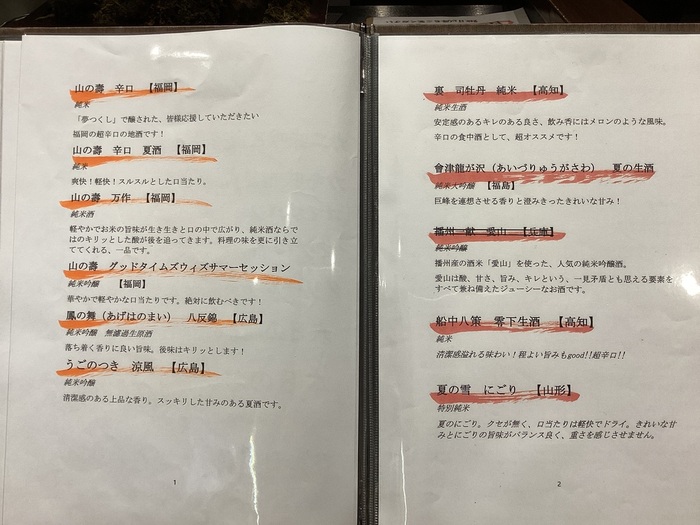 山の壽 辛口 【福岡】
純米
「夢つくし」で醸された、皆様応援していただきたい
福岡の超辛口の地酒です！
山の壽 辛口 夏酒 【福岡】
純米
爽快！軽快！スルスルとした口当たり。
山の壽 万作 【福岡】
純米酒
軽やかでお米の旨味が生き生きと口の中で広がり、純米酒ならで
はのキリっとした酸が後を追ってきます。料理の味を更に引き立
ててくれる、一品です。
山の壽 グッドタイムズウィズサマーセッション
純米吟醸 【福岡】
華やかで軽やかな口当たりです。絶対に飲むべきです！
鳳の舞（あげはのまい） 八反錦 【広島】
純米吟醸 無濾過生原酒
落ち着く香りに良い旨味。後味はキリっとします！
うごのつき 涼風 【広島】
純米吟醸
清潔感のある上品な香り。スッキリした甘みのある夏酒です。
1
裏 司牡丹 純米 【高知】
純米生酒
安定感のあるキレのある良さ、飲み香にはメロンのような風味。
辛口の食中酒として、超オススメです！
會津龍が沢（あいづりゅうがさわ） 夏の生酒
純米大吟醸 【福島】
巨峰を連想させる香りと澄みきったきれいな甘み！
播州一献 愛山 【兵庫】
純米吟醸
播州産の酒米「愛山」を使った、人気の純米吟醸酒。
愛山は酸、甘さ、旨み、キレという、一見矛盾とも思える要素を
すべて兼ね備えたジューシーなお酒です。
船中八策 零下生酒 【高知】
純米
清潔感溢れる味わい！程よい旨みもgood!!超辛口!!
夏の雪 にごり 【山形】
特別純米
夏のにごり。クセが無く、口当たりは軽快でドライ。きれいな甘
みとにごりの旨味がバランス良く、重さを感じさせません。
2